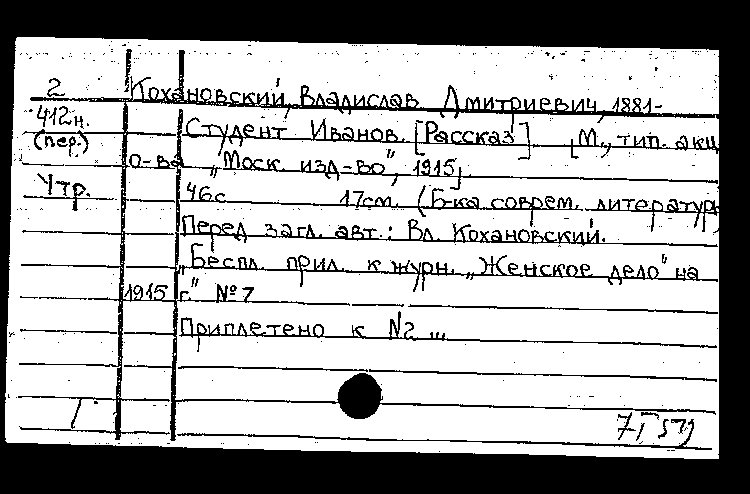 2 Кохановский, Владислав Дмитриевич, 1881-
412н. Студент Иванов. [Рассказ] [М., тип. акц
(пер.) о-ва „Моск. изд-во", 1915]
Утр. 46с 17см. (Б-ка соврем. литературы
Перед загл. авт.: Вл. Кохановский.
„Беспл. прил. к журн. „Женское дело" на
1915 г." № 7
Приплетено к №2 ...